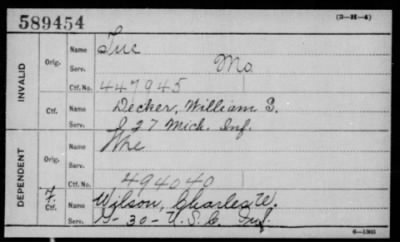 589454
(3-H-4)
INVALID
Orig.
Name
Serv. Mo
Ctf. No. 447945
Ctf.
Name Decker, William S.
Serv. I 27 Mich. Inf.
DEPENDENT
Orig.
Name
Serv.
Ctf. No. 494040
F.
Ctf.
Name Wilson, Charles W.
Serv. D-30-U.S.C. Inf.
6-1901